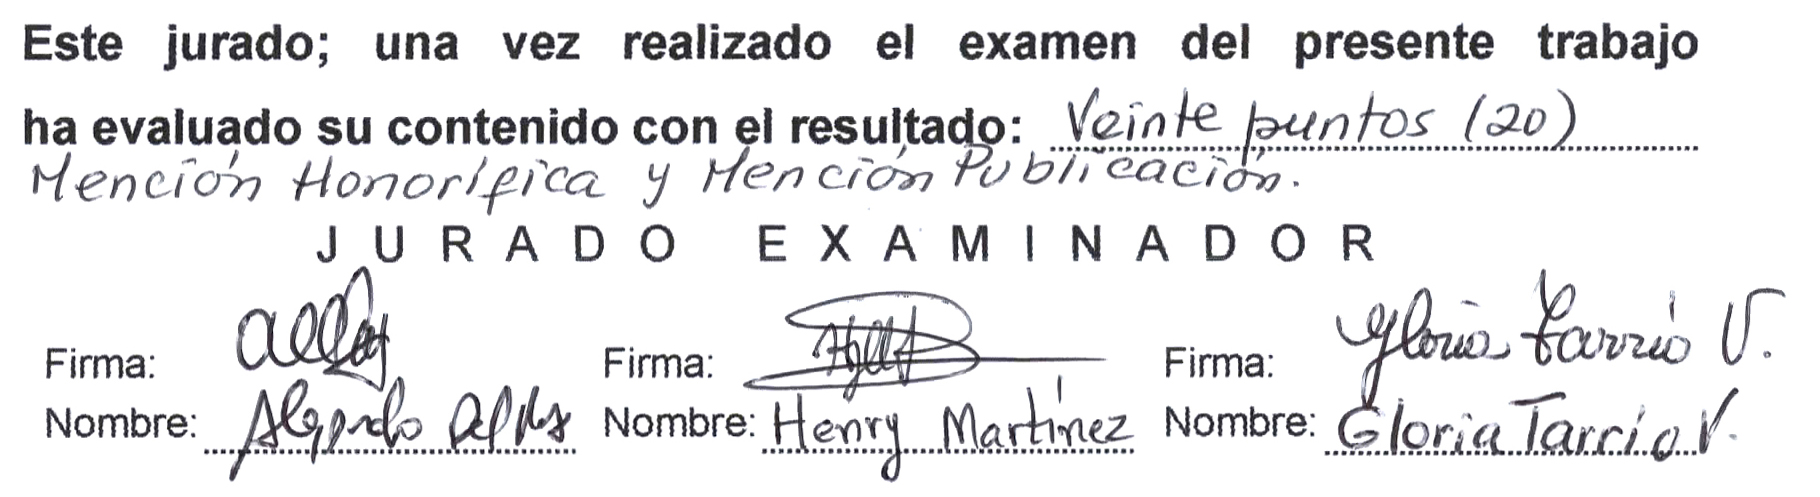 Este jurado; una vez realizado el examen del presente trabajo
ha evaluado su contenido con el resultado: Veinte puntos (20)
Mención Honorífica y Mención Publicación.
JURADO EXAMINADOR
Firma: Firma: Firma: Gloria Tarrío V.
Nombre: Nombre: Henry Martínez Nombre: Gloria Tarrío V.